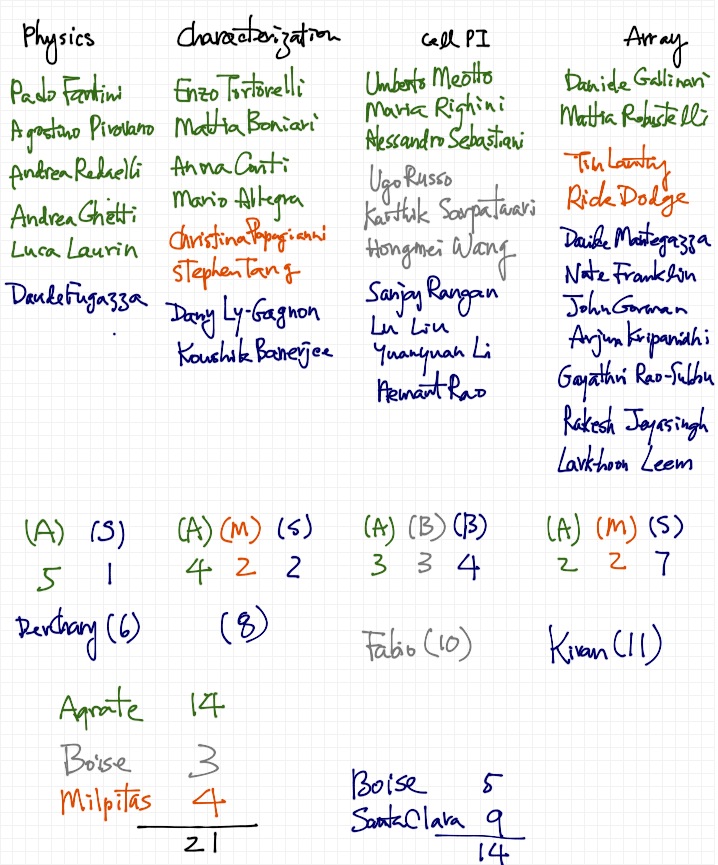 Physics
Paolo Fantini
Agostino Pirovano
Andrea Redaelli
Andrea Ghetti
Luca Laurin
Davide Fugazza
Characterization
Enzo Tortorelli
Mattia Boniari
Anna Conti
Mario Allegra
Christina Papagianni
Stephen Tang
Dany Ly-Gagnon
Koushik Banerjee
Cell PI
Umberto Meotto
Maria Righini
Alessandro Sebastiani
Ugo Russo
Karthik Sarpatwari
Hongmei Wang
Sanjay Rangan
Lu Liu
Yuanyuan Li
Hemant Rao
Array
Danide Gallinari
Mattia Robustelli
Rick Dodge
Davide Mantegazza
Nate Franklin
John Gorman
Arjun Kripanidhi
Gayathri Rao-Subbu
Rakesh Jeyasingh
Larkhoon Leem
(A) (S)
5 1
DerChang (6)
(A) (M) (S)
4 2 2
(8)
(A) (B) (B)
3 3 4
Fabio (10)
(A) (M) (S)
2 2 7
Kiran (11)
Agrate 14
Boise 3
Milpitas 4
21
Boise 5
Santa Clara 9
14